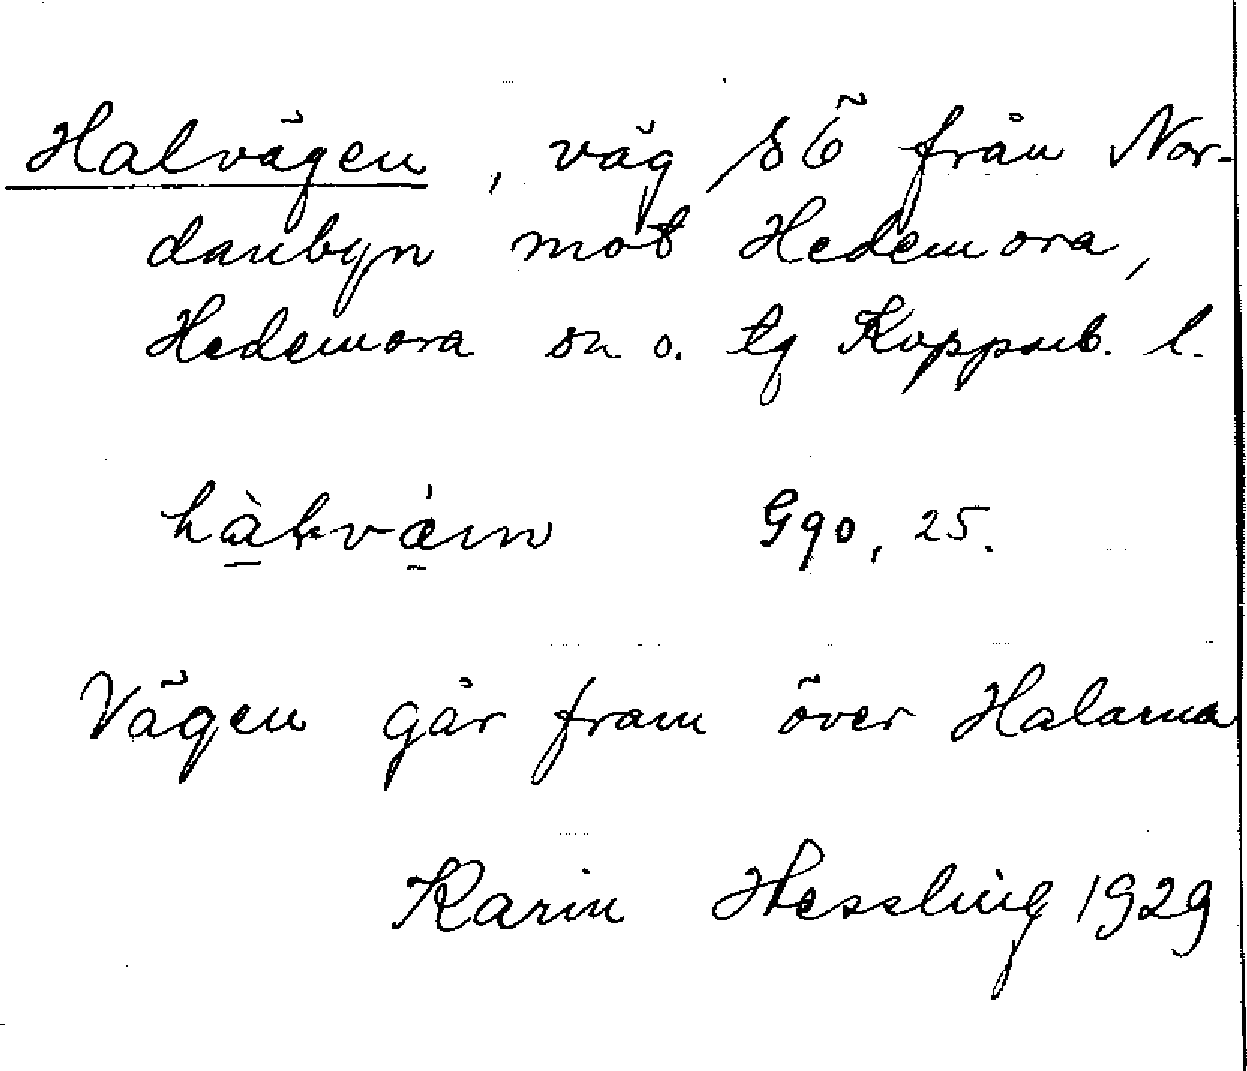 Halvägen, väg SÖ från Nor-
danbyn mot Hedemora,
Hedemora sn o. tg Kopparb. l.
G90, 25.
Vägen går fram över Halarna
Karin Hessling 1929